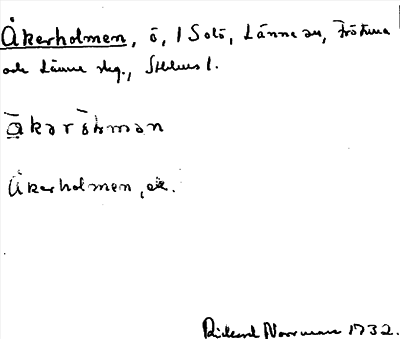 Åkerholmen, ö, 1 Solö, Länna sn, Frötuna
och Länna skg., Sthlms l.
åkərōhmən
Åkerholmen, ek.
Rickard Norrman 1932.